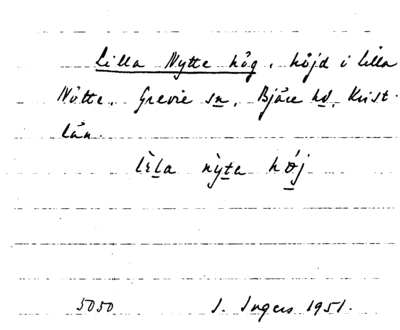 Lilla Nytte hög, höjd i Lilla
Nötte, Grevie sn, Bjäre hd, Krist.
län.
lèla nỳta høj
5050 I. Ingers 1951.